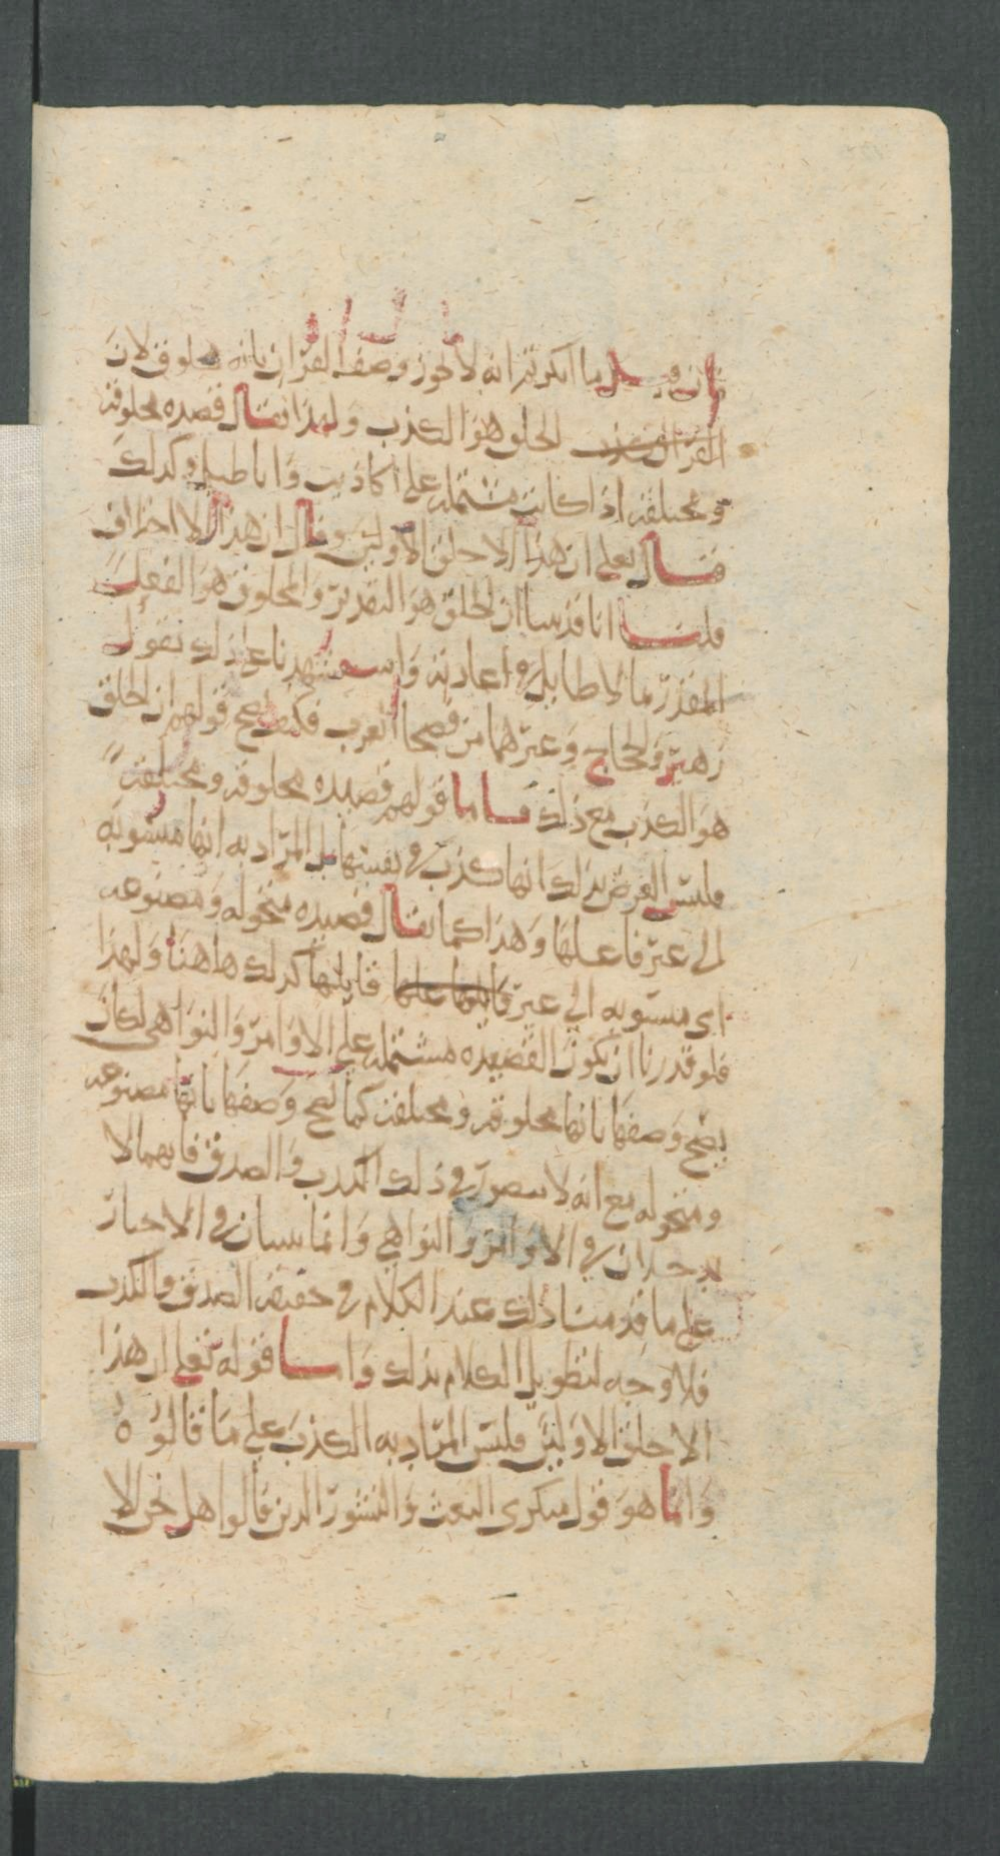 فان قيل ما انكرتم انه لا يجوز وصف القران بانه مخلوق لان
الخلق هو الكذب ولهذا يقال قصيده مخلوقة
ومختلقة اذا كانت مشتملة على اكاذيب واباطيل وكذلك
فقال تعلى ان هذا الا خلق الاولين وقال ان هذا الا اختراق
قلنا انا قد بينا ان الخلق هو التقدير والمخلوق هو الفعل
المقدر بما لا طايل في اعادته واستشهدنا على ذلك بقول
زهير والحجاج وغيرهما من فصحا العرب فكيف يصح قولهم ان الخلق
هو الكذب مع ذلك فاما قولهم قصيده مخلوقة ومختلقة
فليس الغرض بذلك انها كذب في نفسها بل المراد به انها منسوبة
الى غير فاعلها وهذا كما يقال قصيده منحوله ومصنوعه
اي منسوبه الى غير قايلها كذلك هاهنا ولهذا
فلو قدرنا ان تكون القصيده مشتملة على الاوامر والنواهى لكان
يصح وصفها بانها مخلوقة ومختلقة كما يصح وصفها بانها مصنوعه
ومنحوله مع انه لا يتصور في ذلك الكذب والصدق فانهما لا
يدخلان في الاوامر والنواهي وانما يتبينان في الاخبار
على ما قدمنا ذلك عند الكلام في حقيقة الصدق والكذب
فلا وجه لتطويل الكلام بذلك واما قوله تعلى ان هذا
الا خلق الاولين فليس المراد به الكذب على ما قالوه
وانما هو قول منكرى البعث والنشور الذين قالوا هل نحن الا